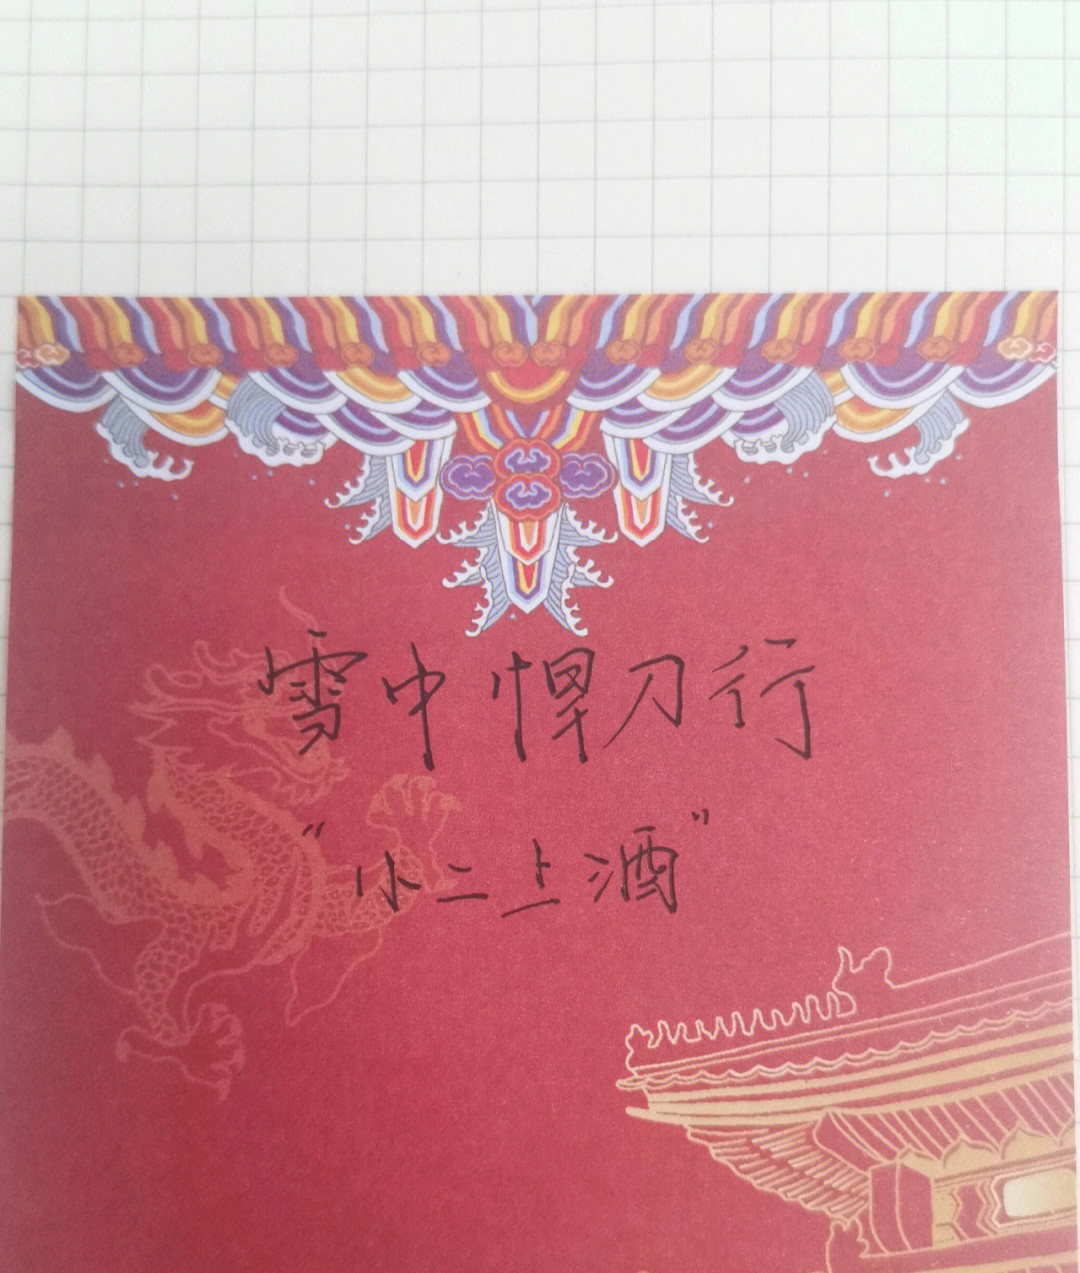 雪中悍刀行
“小二上酒”